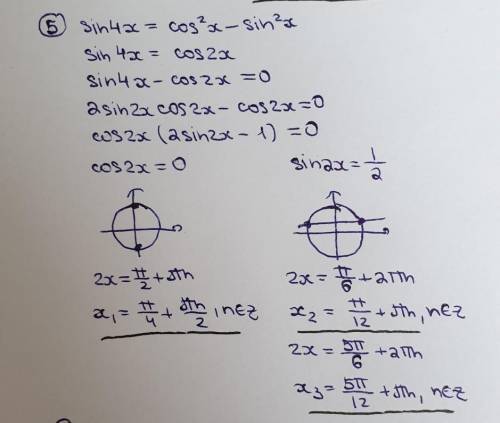 ⑤ sin4x = cos²x − sin²x
sin 4x = cos2x
sin4x − cos2x = 0
2sin2x cos2x − cos2x = 0
cos2x (2sin2x − 1) = 0
cos2x = 0 sin2x = 1/2
2x = π/2 + πn 2x = π/6 + 2πn
x₁ = π/4 + πn/2, n∈z x₂ = π/12 + πn, n∈z
2x = 5π/6 + 2πn
x₃ = 5π/12 + πn, n∈z